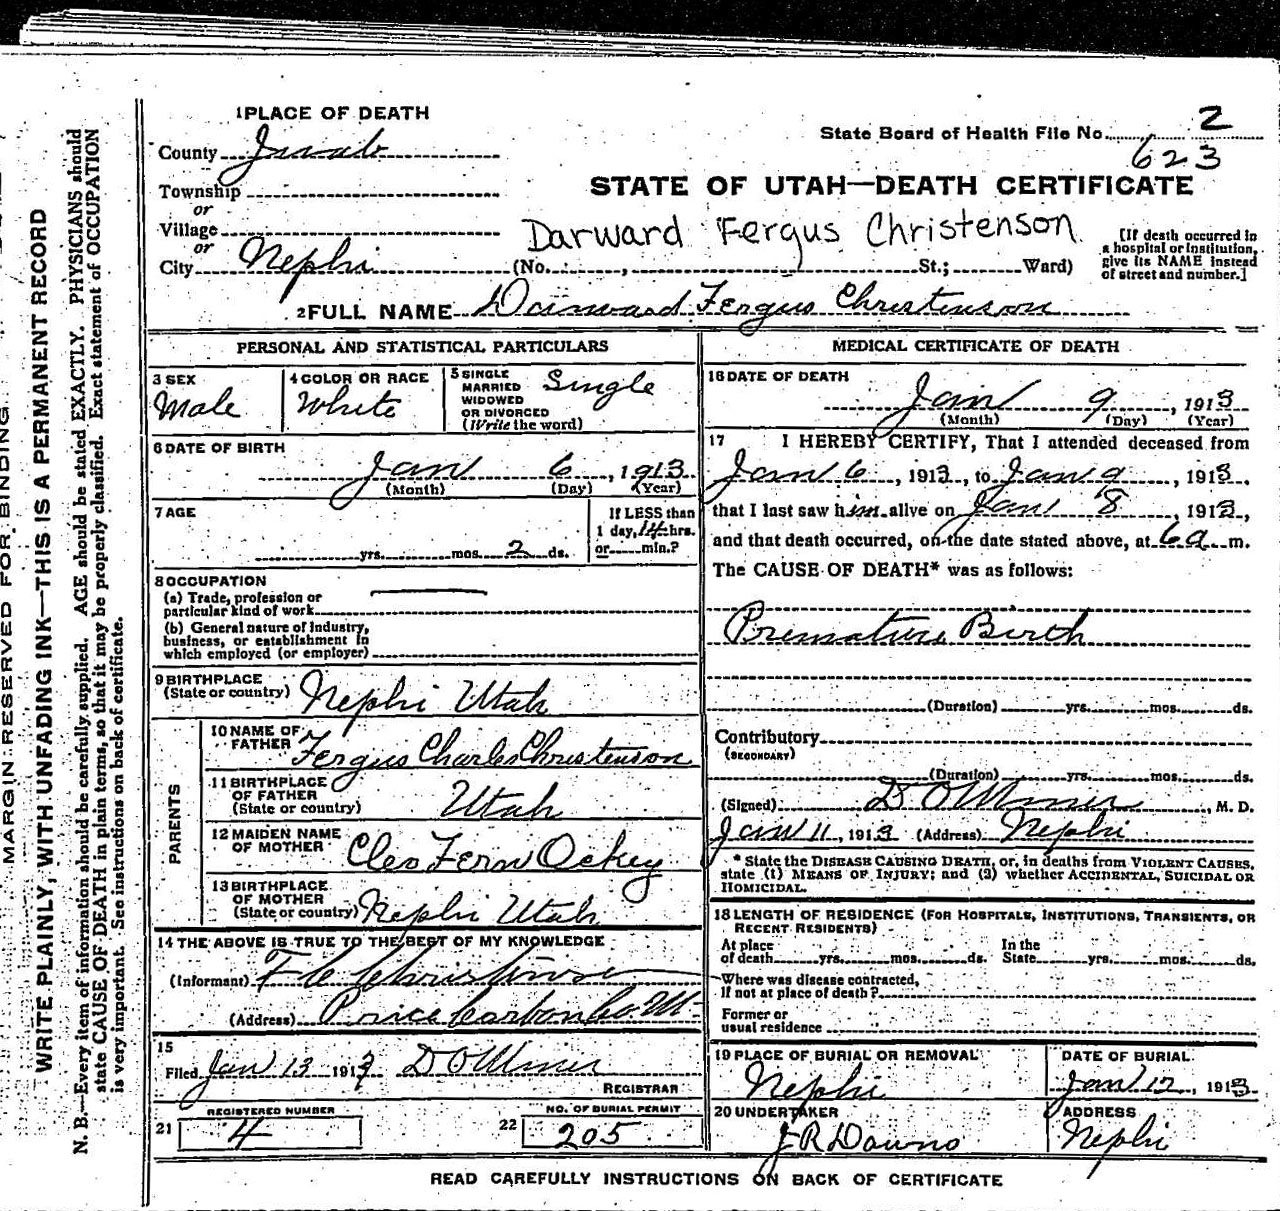 1 PLACE OF DEATH
State Board of Health File No. 2
County Juab
623
STATE OF UTAH—DEATH CERTIFICATE
Township
or
Village
or
City Nephi
Darward Fergus Christenson
(No. , St.; Ward)
[If death occurred in
a hospital or institution,
give its NAME instead
of street and number.]
2 FULL NAME Darward Fergus Christenson
PERSONAL AND STATISTICAL PARTICULARS
3 SEX
Male
4 COLOR OR RACE
White
5 SINGLE
MARRIED
WIDOWED
OR DIVORCED
(Write the word)
Single
6 DATE OF BIRTH
Jan 6, 1913
(Month) (Day) (Year)
7 AGE
yrs. mos. 2 ds.
If LESS than
1 day, 14 hrs.
or min.?
8 OCCUPATION
(a) Trade, profession or
particular kind of work
(b) General nature of industry,
business, or establishment in
which employed (or employer)
9 BIRTHPLACE
(State or country) Nephi Utah
PARENTS
10 NAME OF
FATHER Fergus Charles Christenson
11 BIRTHPLACE
OF FATHER
(State or country) Utah
12 MAIDEN NAME
OF MOTHER Cleo Fern Ockey
13 BIRTHPLACE
OF MOTHER
(State or country) Nephi Utah
14 THE ABOVE IS TRUE TO THE BEST OF MY KNOWLEDGE
(Informant) F C Christenson
(Address) Price Carbon Co. Ut
15
Filed Jan 13 1913 D O Miner
REGISTRAR
REGISTERED NUMBER
21 4
NO. OF BURIAL PERMIT
22 205
MEDICAL CERTIFICATE OF DEATH
16 DATE OF DEATH
Jan 9, 1913
(Month) (Day) (Year)
17 I HEREBY CERTIFY, That I attended deceased from
Jan 6, 1913, to Jan 9, 1913,
that I last saw him alive on Jan 8, 1913,
and that death occurred, on the date stated above, at 6 a m.
The CAUSE OF DEATH* was as follows:
Premature Birth
(Duration) yrs. mos. ds.
Contributory
(SECONDARY)
(Duration) yrs. mos. ds.
(Signed) D O Miner, M. D.
Jan 11, 1913 (Address) Nephi
* State the DISEASE CAUSING DEATH, or, in deaths from VIOLENT CAUSES,
state (1) MEANS OF INJURY; and (2) whether ACCIDENTAL, SUICIDAL OR
HOMICIDAL.
18 LENGTH OF RESIDENCE (FOR HOSPITALS, INSTITUTIONS, TRANSIENTS, OR
RECENT RESIDENTS)
At place
of death yrs. mos. ds.
In the
State yrs. mos. ds.
Where was disease contracted,
If not at place of death?
Former or
usual residence
19 PLACE OF BURIAL OR REMOVAL
Nephi
DATE OF BURIAL
Jan 12, 1913
20 UNDERTAKER
J R Downs
ADDRESS
Nephi
READ CAREFULLY INSTRUCTIONS ON BACK OF CERTIFICATE
MARGIN RESERVED FOR BINDING
WRITE PLAINLY, WITH UNFADING INK—THIS IS A PERMANENT RECORD
N. B.—Every item of information should be carefully supplied. AGE should be stated EXACTLY. PHYSICIANS should
state CAUSE OF DEATH in plain terms, so that it may be properly classified. Exact statement of OCCUPATION
is very important. See instructions on back of certificate.